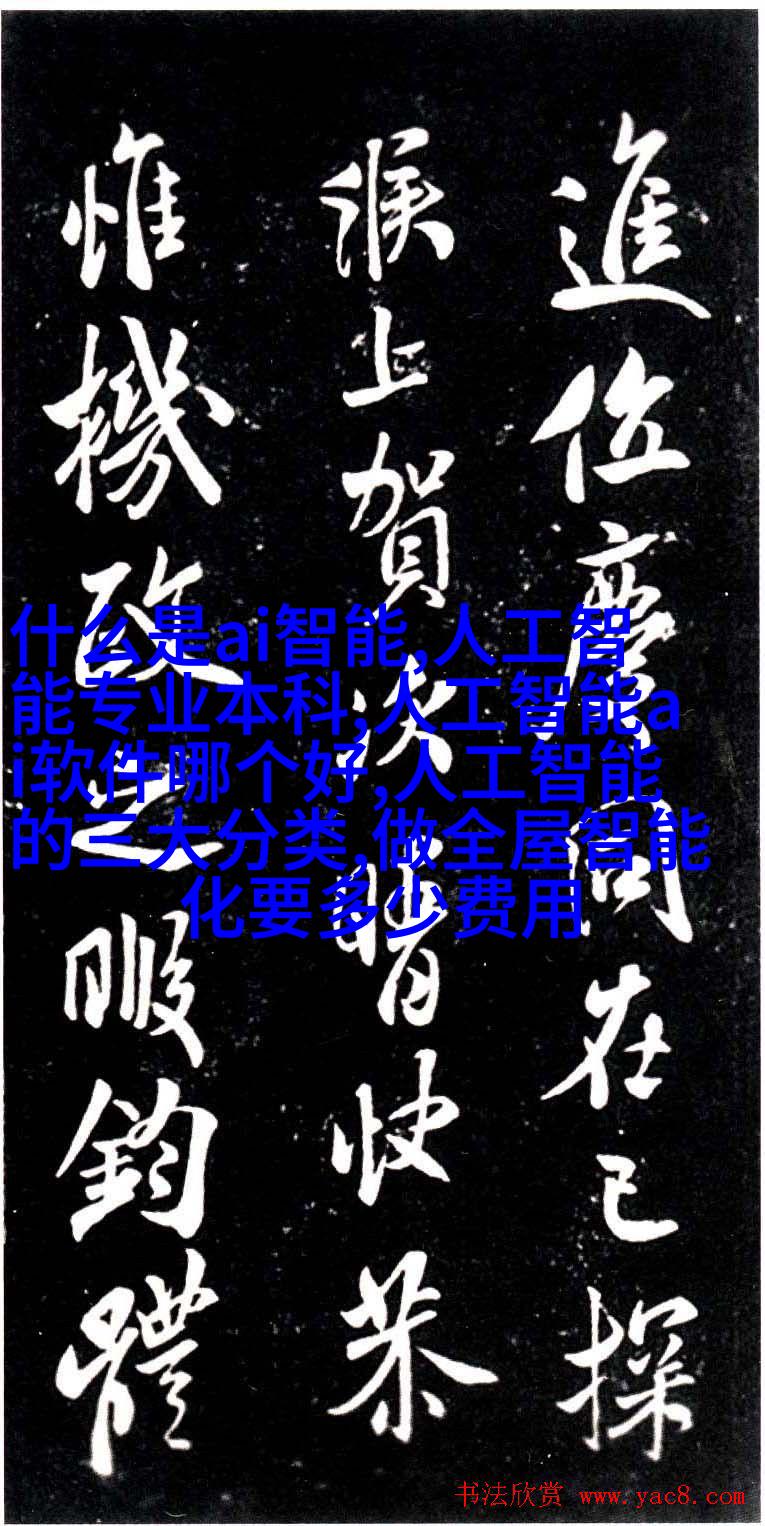 進位慶同在已探
候上賀次晴快恭
惟機政之暇鈞體
什么是ai智能,人工智
能专业本科,人工智能a
i软件哪个好,人工智能
的三大分类,做全屋智能
化要多少费用
书法欣赏 www.yac8.com